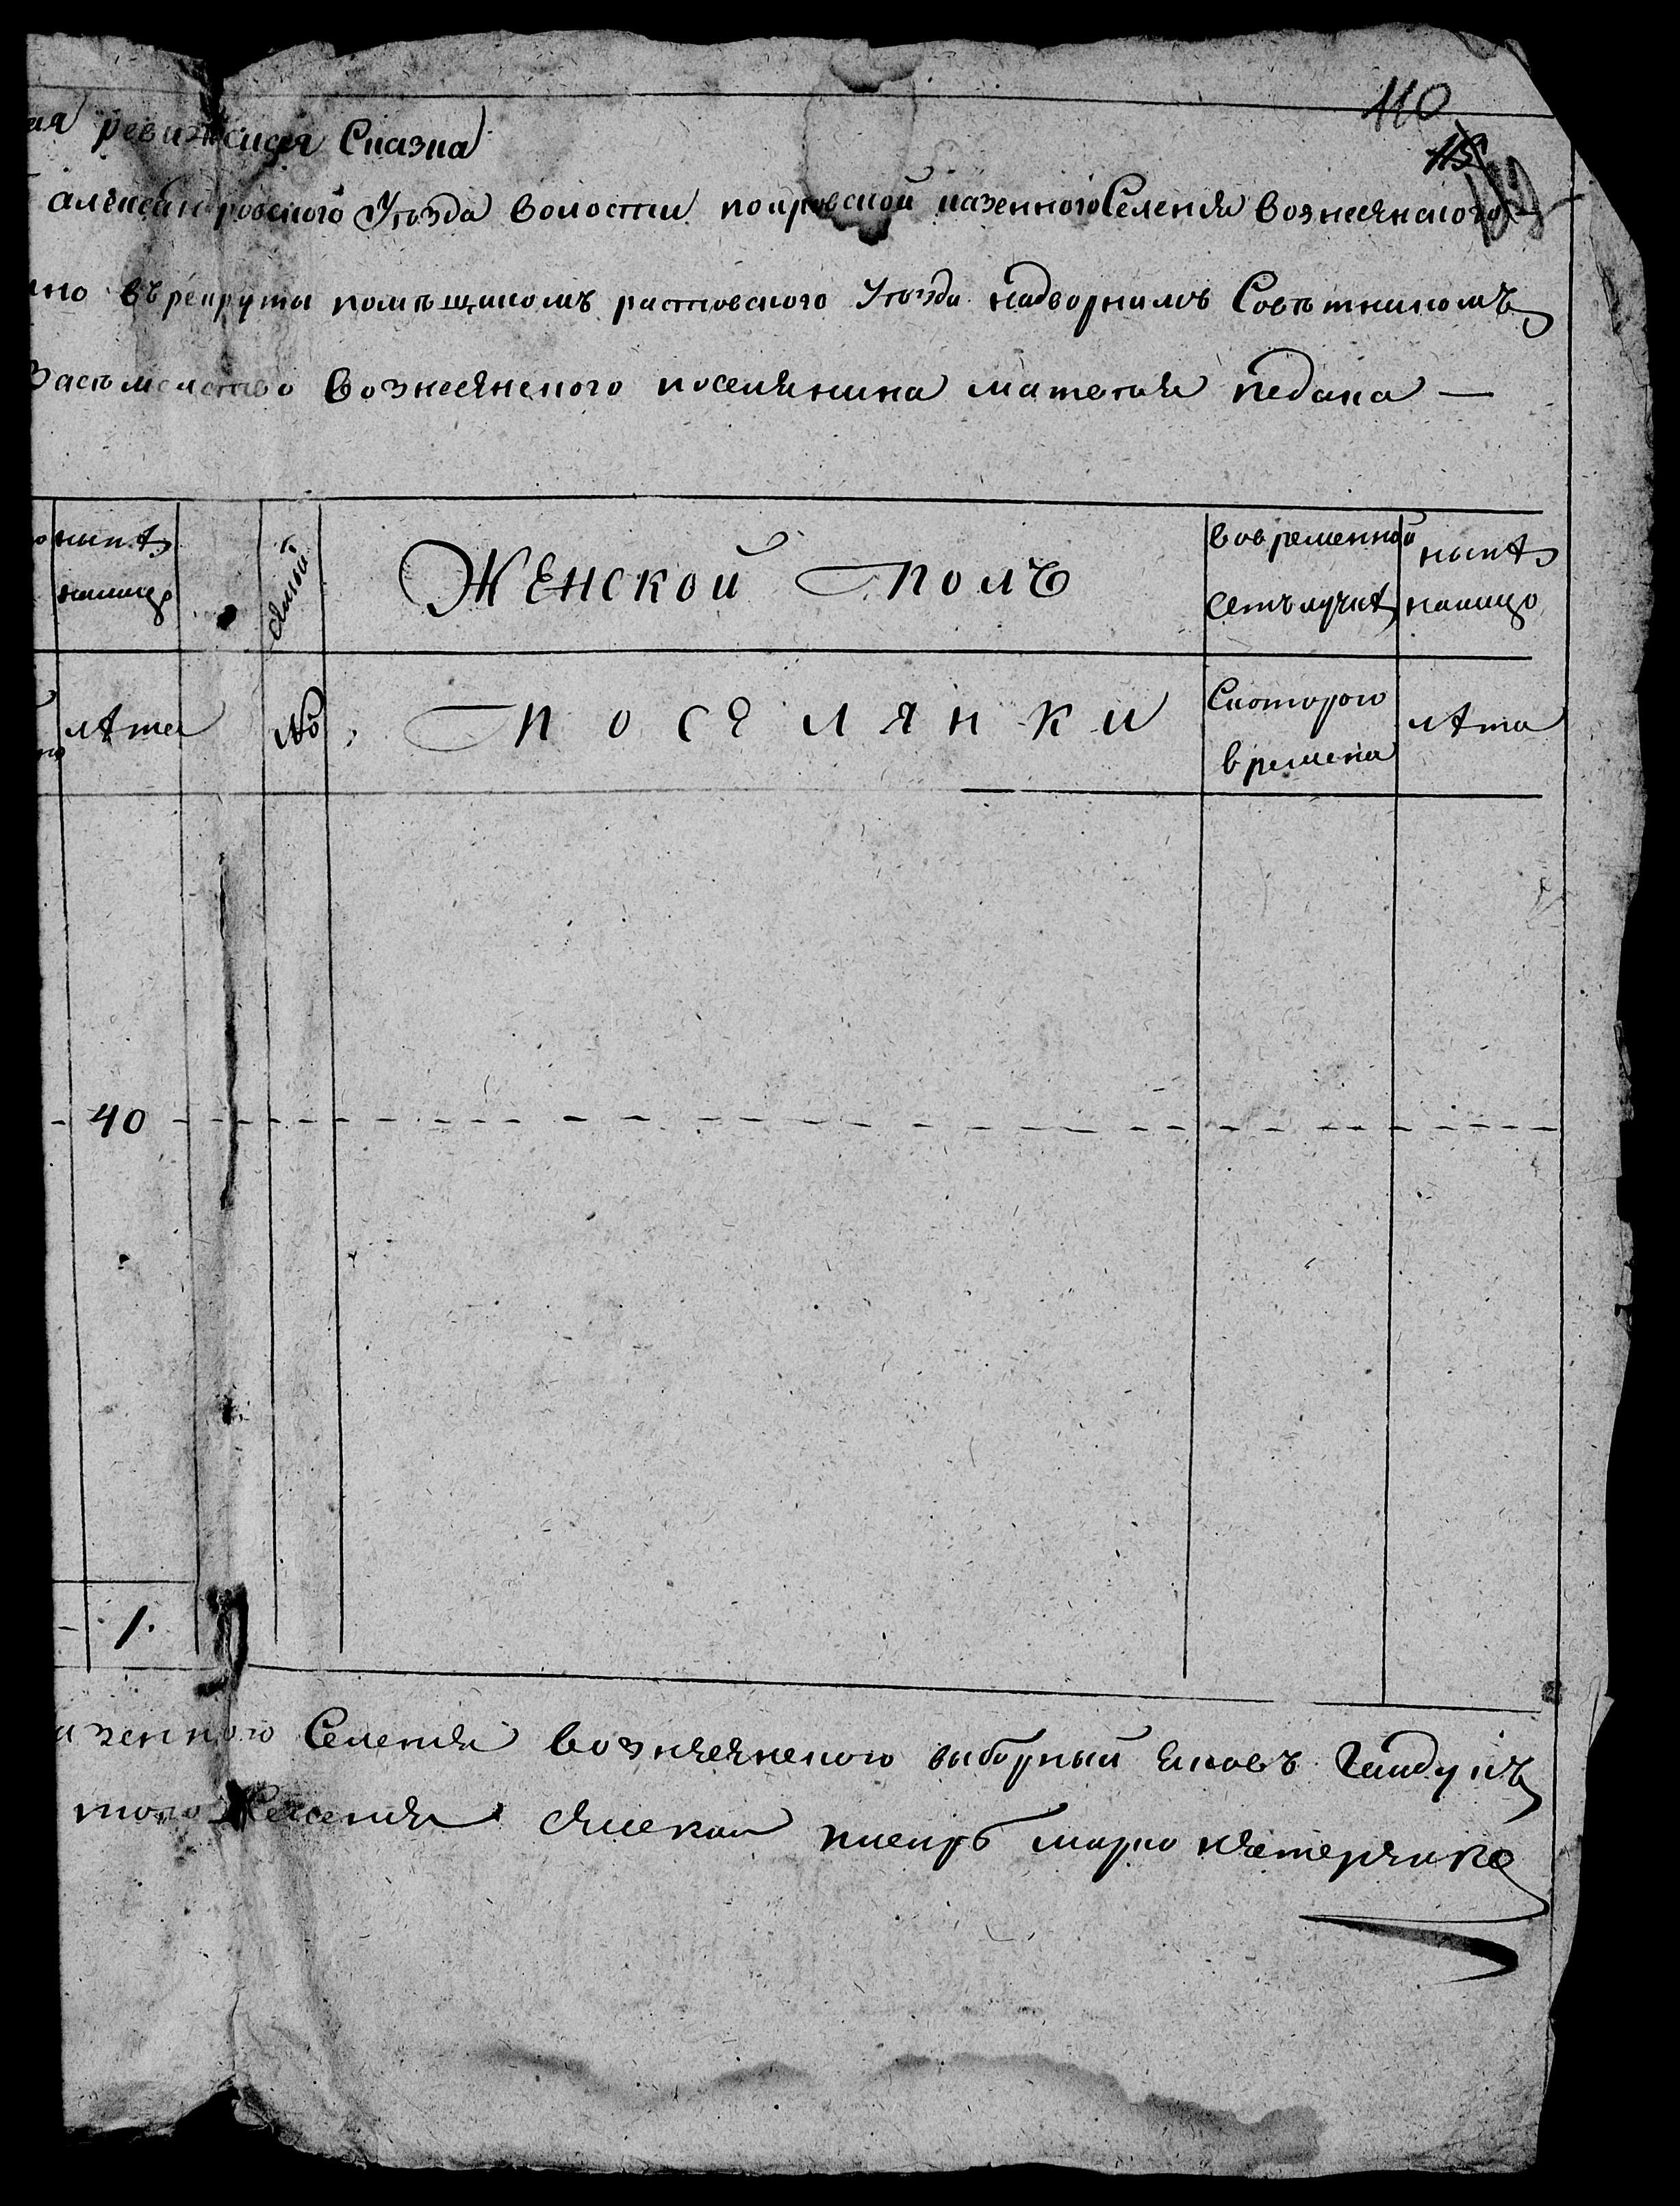 110
115
ая ревижская Сказка
александровского Уезда волости покровской казенного Селения вознесянского —
но въ рекруты помъщикомъ растовского Уъзда надворнимъ Совътникомъ
вознесянского поселянина матвъя педана —
нынѣ налицо
Женской полъ
вовременной отълучкѣ
нынѣ налицо
лѣта
№
поселянки
Скоторого времена
лѣта
40
1.
азенного Селения вознясянского выборный яковъ
того Селения писарь марко нѣтерянко